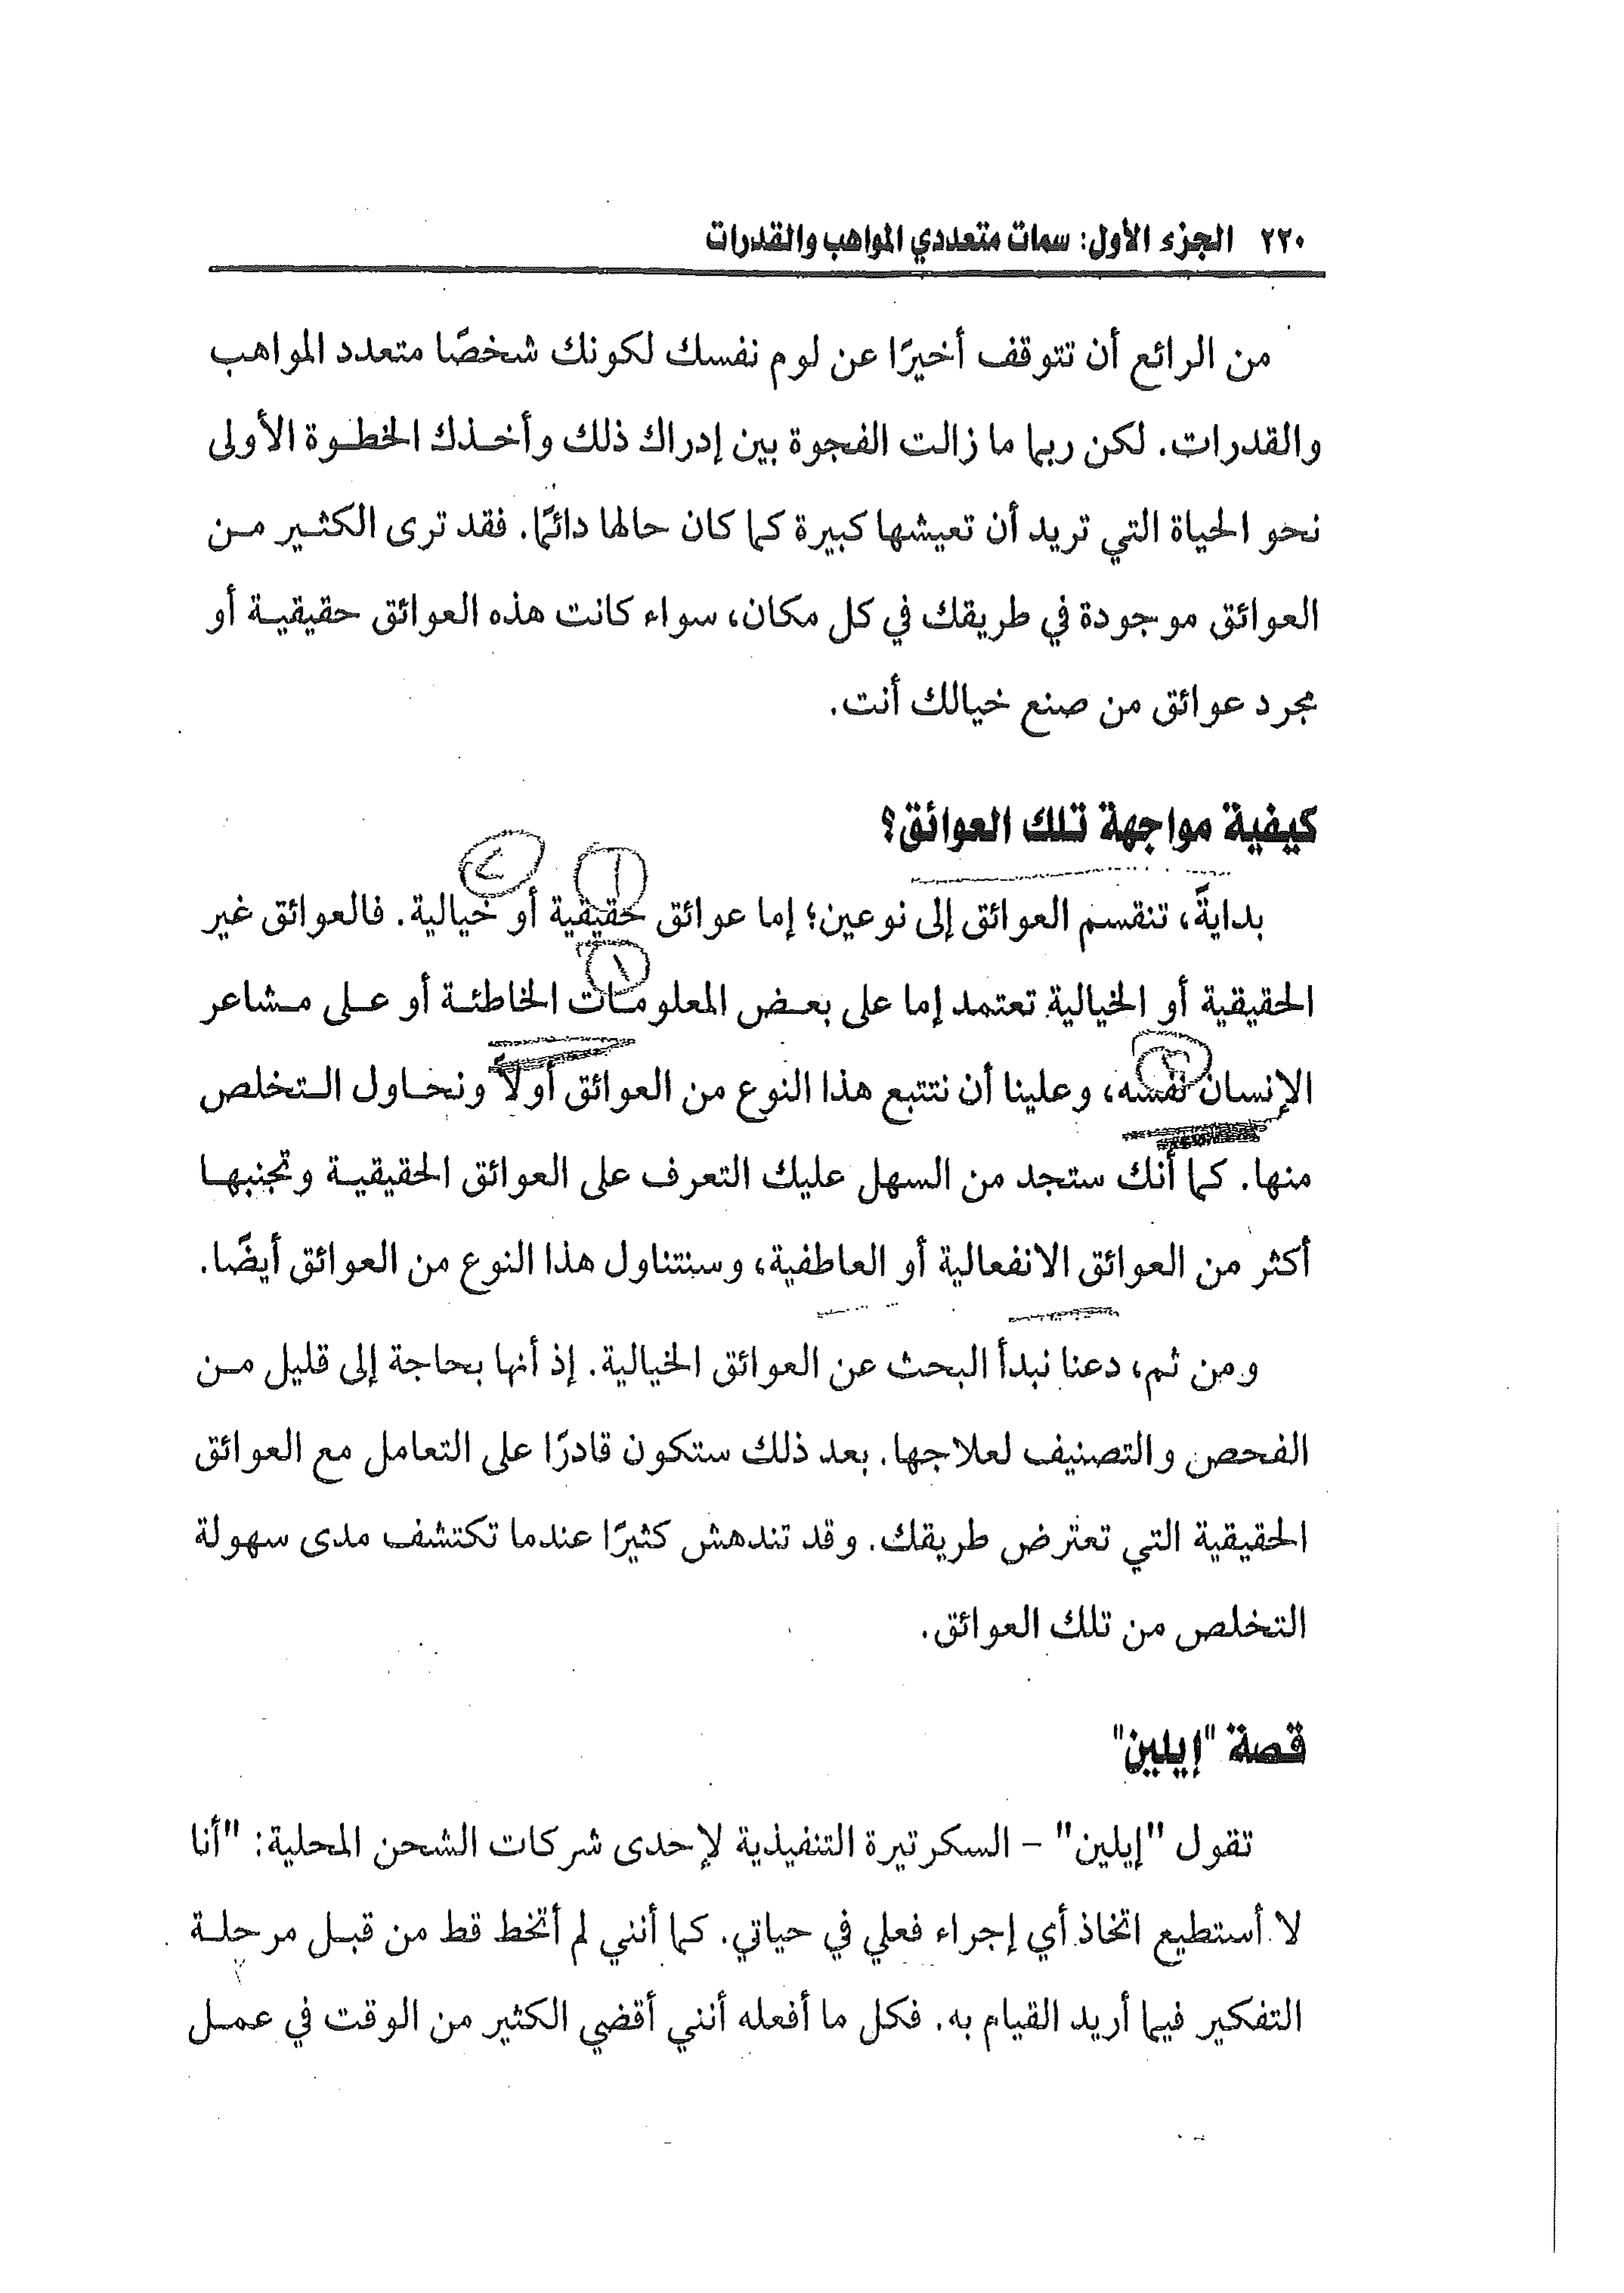 ٢٢٠ الجزء الأول: سمات متعددي المواهب والقدرات
من الرائع أن تتوقف أخيرًا عن لوم نفسك لكونك شخصًا متعدد المواهب
والقدرات. لكن ربما ما زالت الفجوة بين إدراك ذلك وأخذك الخطوة الأولى
نحو الحياة التي تريد أن تعيشها كبيرة كما كان حالها دائمًا. فقد ترى الكثير من
العوائق موجودة في طريقك في كل مكان، سواء كانت هذه العوائق حقيقية أو
مجرد عوائق من صنع خيالك أنت.
كيفية مواجهة تلك العوائق؟
بدايةً، تنقسم العوائق إلى نوعين؛ إما عوائق حقيقية أو خيالية. فالعوائق غير
الحقيقية أو الخيالية تعتمد إما على بعض المعلومات الخاطئة أو على مشاعر
الإنسان نفسه، وعلينا أن نتتبع هذا النوع من العوائق أولاً ونحاول التخلص
منها. كما أنك ستجد من السهل عليك التعرف على العوائق الحقيقية وتجنبها
أكثر من العوائق الانفعالية أو العاطفية، وسنتناول هذا النوع من العوائق أيضًا.
ومن ثم، دعنا نبدأ البحث عن العوائق الخيالية. إذ أنها بحاجة إلى قليل من
الفحص والتصنيف لعلاجها. بعد ذلك ستكون قادرًا على التعامل مع العوائق
الحقيقية التي تعترض طريقك. وقد تندهش كثيرًا عندما تكتشف مدى سهولة
التخلص من تلك العوائق.
قصة "إيلين"
تقول "إيلين" – السكرتيرة التنفيذية لإحدى شركات الشحن المحلية: "أنا
لا أستطيع اتخاذ أي إجراء فعلي في حياتي. كما أنني لم أتخط قط من قبل مرحلة
التفكير فيما أريد القيام به. فكل ما أفعله أنني أقضي الكثير من الوقت في عمل